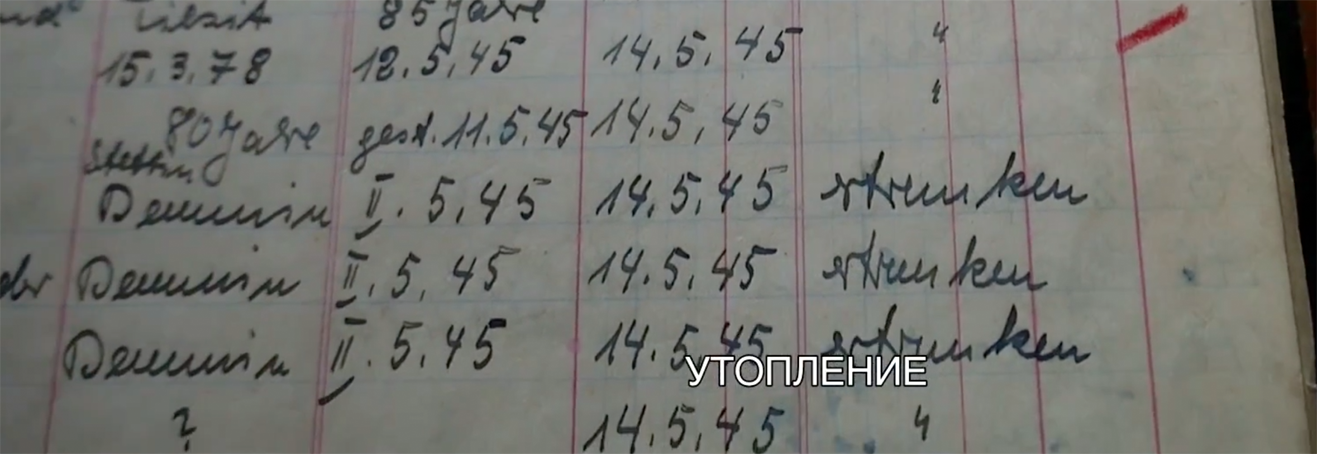 Tilsit 85 Jahre
15.3.78 12.5.45 14.5.45 "
80 Jahre gest. 11.5.45 14.5.45 "
Stettin
Demmin II.5.45 14.5.45 ertrunken
Demmin II.5.45 14.5.45 ertrunken
Demmin II.5.45 14.5.45 ertrunken
УТОПЛЕНИЕ
? 14.5.45 "